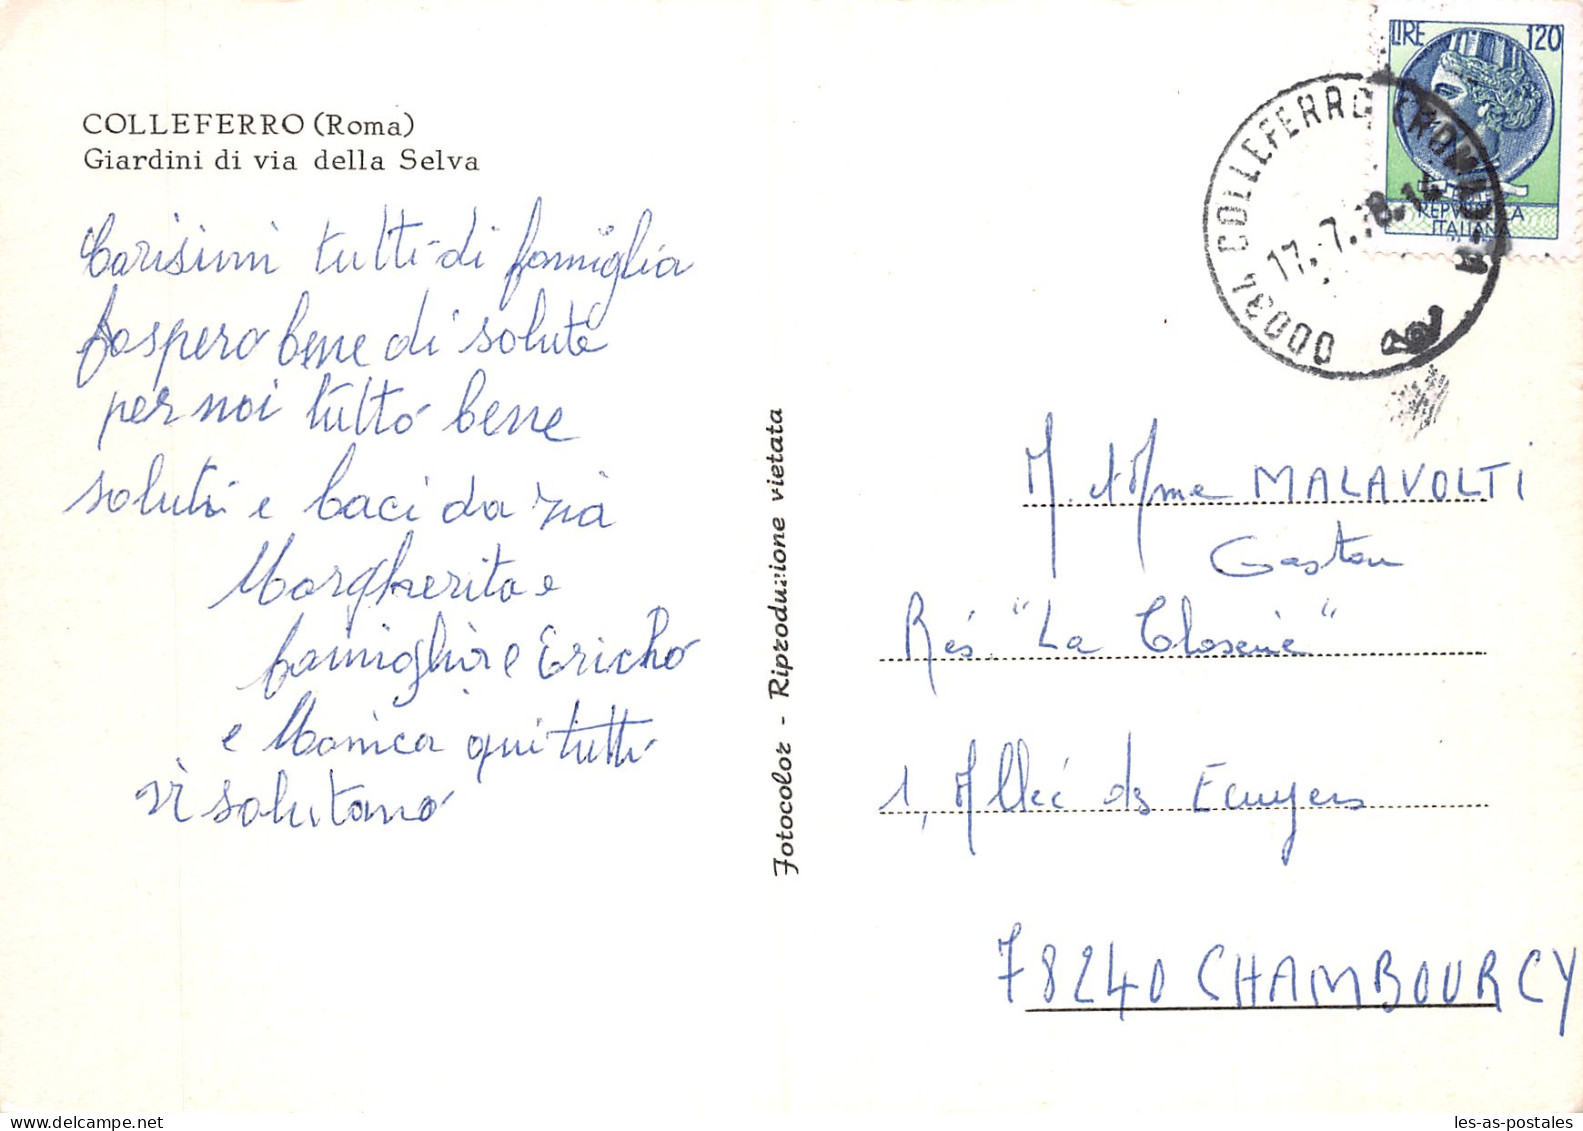 COLLEFERRO (Roma)
Giardini di via della Selva
Carisimi tutti di famiglia
fospero bene di solute
per noi tutto bene
soluti e baci da zia
Margherita e
famighia e Ericho
e Monica qui tutti
vi solutano
Fotocolor - Riproduzione vietata
LIRE 120
REPVBBLICA
ITALIANA
00034 COLLEFERRO (ROMA)
17.7.78.14
M. et Mme MALAVOLTI
Gaston
Rés. "La Closerie"
1, Allée des Ecuyers
78240 CHAMBOURCY
les-as-postales